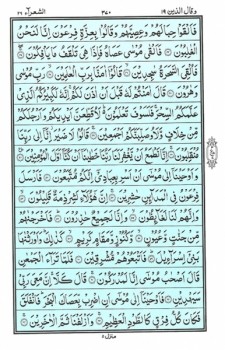 وقال الذين ١٩ ٣٧٠ الشعرآء ٢٦
فَاَلْقَوْا حِبَالَهُمْ وَعِصِيَّهُمْ وَقَالُوْا بِعِزَّةِ فِرْعَوْنَ اِنَّا لَنَحْنُ
الْغٰلِبُوْنَ ۝ فَاَلْقٰى مُوْسٰى عَصَاهُ فَاِذَا هِيَ تَلْقَفُ مَا يَاْفِكُوْنَ ۝
فَاُلْقِيَ السَّحَرَةُ سٰجِدِيْنَ ۝ قَالُوْٓا اٰمَنَّا بِرَبِّ الْعٰلَمِيْنَ ۝ رَبِّ مُوْسٰى
وَهٰرُوْنَ ۝ قَالَ اٰمَنْتُمْ لَهٗ قَبْلَ اَنْ اٰذَنَ لَكُمْ اِنَّهٗ لَكَبِيْرُكُمُ الَّذِيْ
عَلَّمَكُمُ السِّحْرَ فَلَسَوْفَ تَعْلَمُوْنَ لَاُقَطِّعَنَّ اَيْدِيَكُمْ وَاَرْجُلَكُمْ
مِّنْ خِلَافٍ وَّلَاُوصَلِّبَنَّكُمْ اَجْمَعِيْنَ ۝ قَالُوْا لَا ضَيْرَ اِنَّآ اِلٰى رَبِّنَا
مُنْقَلِبُوْنَ ۝ اِنَّا نَطْمَعُ اَنْ يَّغْفِرَ لَنَا رَبُّنَا خَطٰيٰنَآ اَنْ كُنَّآ اَوَّلَ الْمُؤْمِنِيْنَ ۝
وَاَوْحَيْنَآ اِلٰى مُوْسٰٓى اَنْ اَسْرِ بِعِبَادِيْٓ اِنَّكُمْ مُّتَّبَعُوْنَ ۝ فَاَرْسَلَ
فِرْعَوْنُ فِي الْمَدَآئِنِ حٰشِرِيْنَ ۝ اِنَّ هٰٓؤُلَآءِ لَشِرْذِمَةٌ قَلِيْلُوْنَ ۝
وَاِنَّهُمْ لَنَا لَغَآئِظُوْنَ ۝ وَاِنَّا لَجَمِيْعٌ حٰذِرُوْنَ ۝ فَاَخْرَجْنٰهُمْ
مِّنْ جَنّٰتٍ وَّعُيُوْنٍ ۝ وَّكُنُوْزٍ وَّمَقَامٍ كَرِيْمٍ ۝ كَذٰلِكَ وَاَوْرَثْنٰهَا
بَنِيْٓ اِسْرَآءِيْلَ ۝ فَاَتْبَعُوْهُمْ مُّشْرِقِيْنَ ۝ فَلَمَّا تَرَآءَ الْجَمْعٰنِ
قَالَ اَصْحٰبُ مُوْسٰٓى اِنَّا لَمُدْرَكُوْنَ ۝ قَالَ كَلَّا اِنَّ مَعِيَ رَبِّيْ
سَيَهْدِيْنِ ۝ فَاَوْحَيْنَآ اِلٰى مُوْسٰٓى اَنِ اضْرِبْ بِّعَصَاكَ الْبَحْرَ فَانْفَلَقَ
فَكَانَ كُلُّ فِرْقٍ كَالطَّوْدِ الْعَظِيْمِ ۝ وَاَزْلَفْنَا ثَمَّ الْاٰخَرِيْنَ ۝
منزل ٥